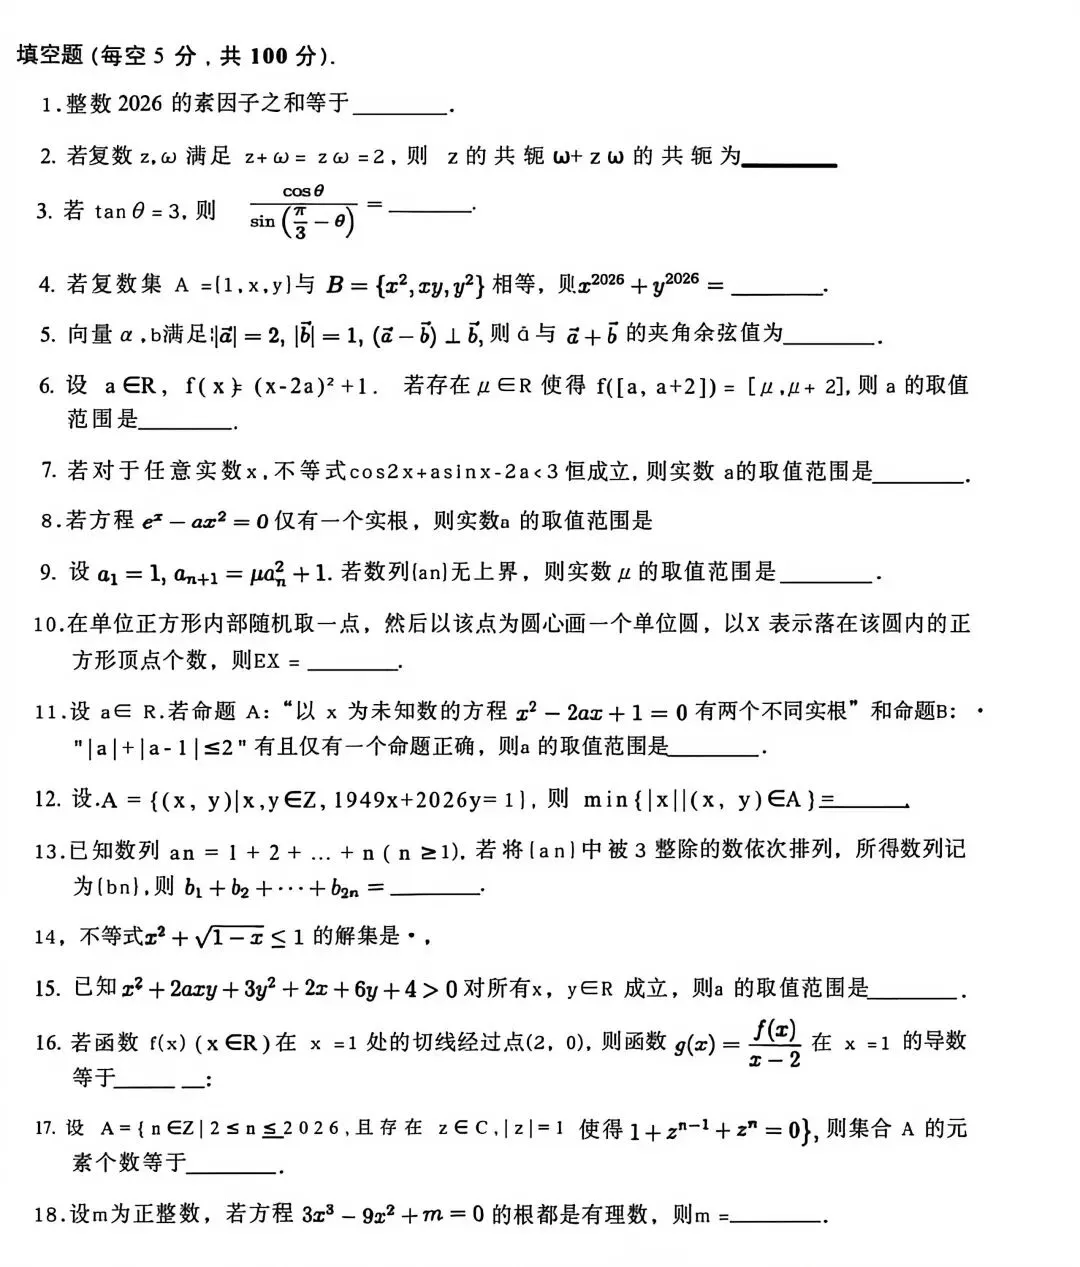 填空题 (每空 5 分，共 100 分).
1.整数 2026 的素因子之和等于________.
2. 若复数 z,ω 满足 z+ω= zω=2, 则 z 的共轭ω+zω的共轭为________
3. 若 tanθ=3, 则 \frac{cosθ}{sin(\frac{π}{3}-θ)} =________.
4. 若复数集 A ={1,x,y}与 B={x²,xy,y²}相等，则x²⁰²⁶+y²⁰²⁶=________.
5. 向量α,b满足:|a⃗|=2, |b⃗|=1, (a⃗-b⃗)⊥b⃗, 则 ā与 a⃗+b⃗ 的夹角余弦值为________.
6. 设 a∈R, f(x)= (x-2a)²+1. 若存在μ∈R 使得 f([a, a+2])= [μ,μ+ 2], 则 a 的取值
范围是________.
7. 若对于任意实数x, 不等式cos2x+asinx-2a<3 恒成立, 则实数 a的取值范围是________.
8.若方程 eˣ-ax²=0仅有一个实根，则实数a 的取值范围是
9. 设 a₁=1, aₙ₊₁=μaₙ²+1. 若数列{an}无上界，则实数μ的取值范围是________.
10.在单位正方形内部随机取一点，然后以该点为圆心画一个单位圆，以X 表示落在该圆内的正
方形顶点个数，则EX =________.
11.设 a∈ R.若命题 A: “以 x 为未知数的方程 x²-2ax+1=0 有两个不同实根” 和命题B: ·
"|a|+|a-1|≤2" 有且仅有一个命题正确，则a 的取值范围是________.
12. 设.A = {(x, y)|x,y∈Z,1949x+2026y=1}, 则 min{|x||(x, y)∈A}=________.
13.已知数列 an = 1 + 2 + ... + n ( n ≥1). 若将{an}中被 3 整除的数依次排列，所得数列记
为{bn},则 b₁+b₂+···+b₂ₙ=________.
14，不等式x²+√(1-x)≤1 的解集是·,
15. 已知x²+2axy+3y²+2x+6y+4>0对所有x，y∈R 成立，则a 的取值范围是________.
16. 若函数 f(x) (x∈R)在 x =1 处的切线经过点(2，0), 则函数 g(x)=\frac{f(x)}{x-2} 在 x =1 的导数
等于______ __:
17. 设 A={n∈Z|2≤n≤2026,且存在 z∈C,|z|=1 使得 1+zⁿ⁻¹+zⁿ=0}, 则集合 A 的元
素个数等于________.
18.设m为正整数，若方程 3x³-9x²+m=0 的根都是有理数，则m =________.